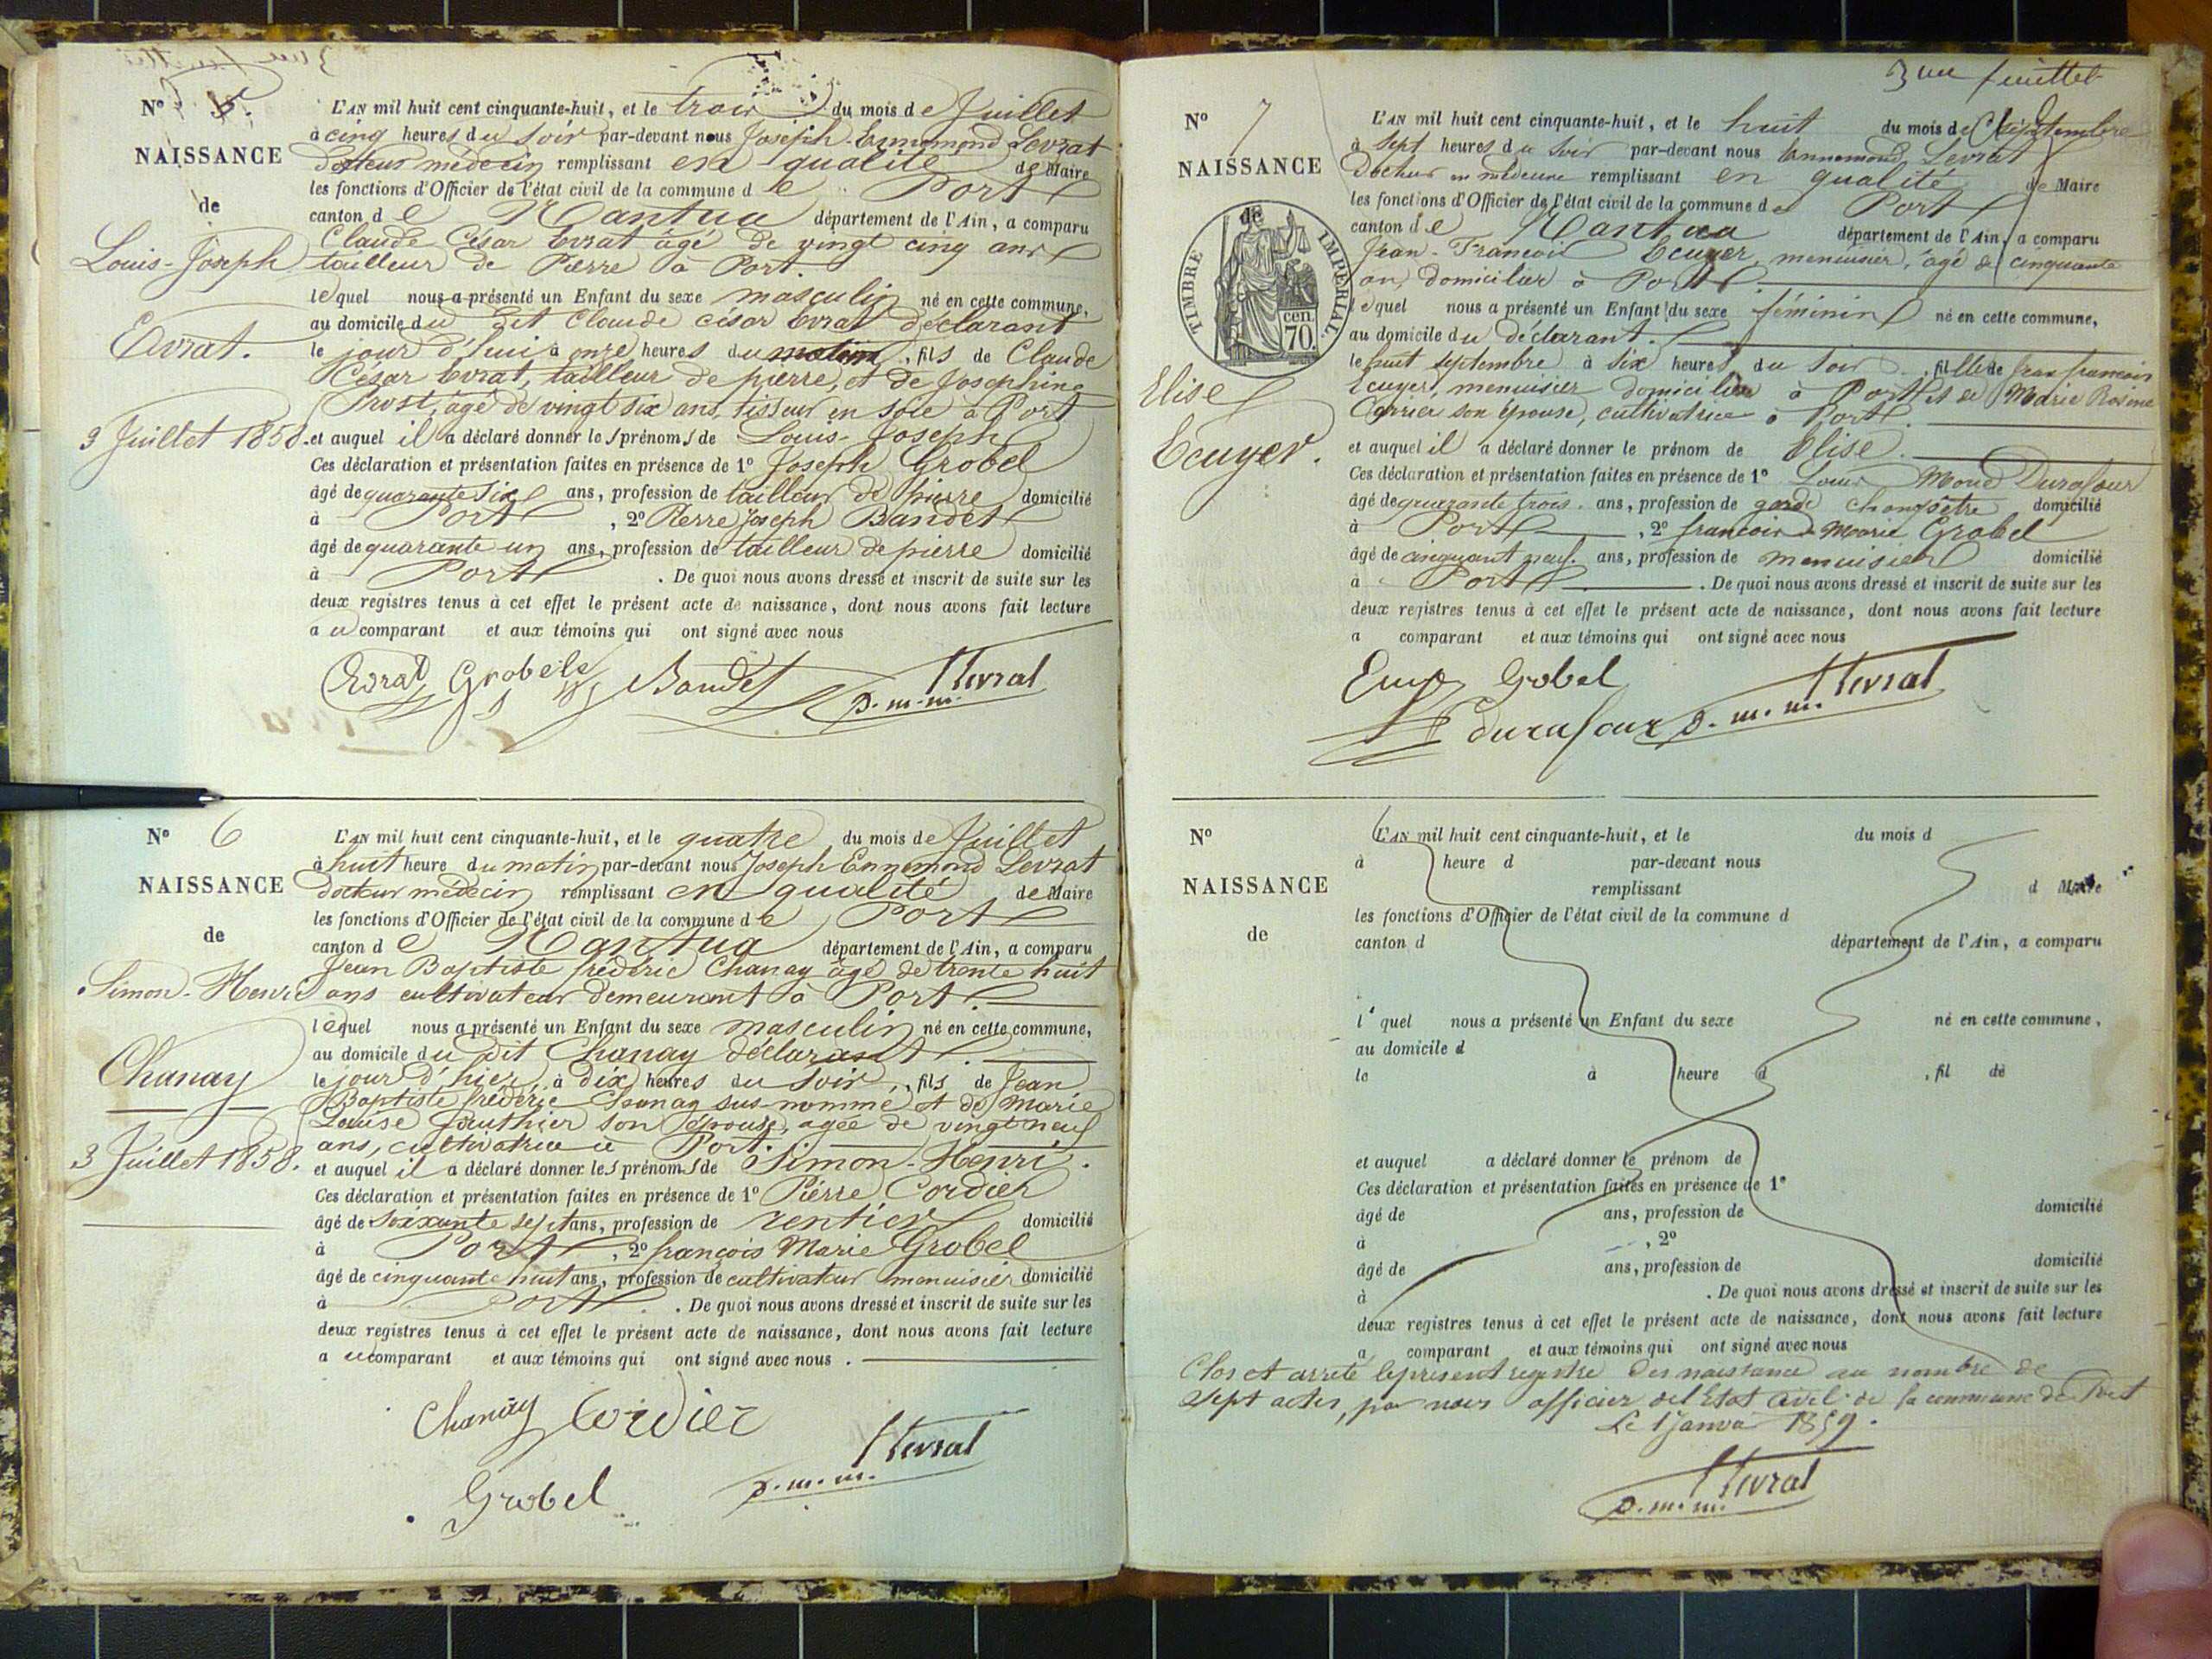 N° 5.
NAISSANCE
de
Louis-Joseph
Evrat.
3 Juillet 1858.
L'AN mil huit cent cinquante-huit, et le trois du mois de Juillet
à cinq heures du soir par-devant nous Joseph-Ennemond Levrat
docteur médecin remplissant en qualité de Maire
les fonctions d'Officier de l'état civil de la commune de Port
canton de Nantua département de l'Ain, a comparu
Claude César Evrat âgé de vingt cinq ans
tailleur de Pierre à Port.
lequel nous a présenté un Enfant du sexe masculin né en cette commune,
au domicile du dit Claude césar Evrat déclarant
le jour d'hui à onze heures du matin, fils de Claude
César Evrat, tailleur de pierre, et de Josephine
Prost, âgé de vingt six ans, tisseur en soie à Port
et auquel il a déclaré donner les prénoms de Louis-Joseph
Ces déclaration et présentation faites en présence de 1° Joseph Grobel
âgé de quarante six ans, profession de tailleur de pierre domicilié
à Port, 2° Pierre Joseph Baudet
âgé de quarante un ans, profession de tailleur de pierre domicilié
à Port. De quoi nous avons dressé et inscrit de suite sur les
deux registres tenus à cet effet le présent acte de naissance, dont nous avons fait lecture
au comparant et aux témoins qui ont signé avec nous
Evrat Grobel Baudet Levrat
d.m.m.
N° 6
NAISSANCE
de
Simon-Henri
Chanay
3 Juillet 1858.
L'AN mil huit cent cinquante-huit, et le quatre du mois de Juillet
à huit heure du matin par-devant nous Joseph Ennemond Levrat
docteur médecin remplissant en qualité de Maire
les fonctions d'Officier de l'état civil de la commune de Port
canton de Nantua département de l'Ain, a comparu
Jean Baptiste frédéric Chanay âgé de trente huit
ans cultivateur demeurant à Port.
lequel nous a présenté un Enfant du sexe masculin né en cette commune,
au domicile du dit Chanay déclarant.
le jour d'hier, à dix heures du soir, fils de Jean
Baptiste frédéric Chanay sus-nommé et de Marie
Louise Gauthier son épouse, agée de vingt neuf
ans, cultivatrice à Port.
et auquel il a déclaré donner les prénoms de Simon-Henri.
Ces déclaration et présentation faites en présence de 1° Pierre Cordier
âgé de soixante sept ans, profession de rentier domicilié
à Port, 2° françois Marie Grobel
âgé de cinquante huit ans, profession de cultivateur menuisier domicilié
à Port. De quoi nous avons dressé et inscrit de suite sur les
deux registres tenus à cet effet le présent acte de naissance, dont nous avons fait lecture
au comparant et aux témoins qui ont signé avec nous.
Chanay Cordier
Levrat
d.m.m.
Grobel
3me feuillet
N° 7
NAISSANCE
de
TIMBRE IMPERIAL.
cen.
70.
Elise
Ecuyer.
L'AN mil huit cent cinquante-huit, et le huit du mois de Septembre
à sept heures du soir par-devant nous Ennemond Levrat
Docteur en médecine remplissant en qualité de Maire
les fonctions d'Officier de l'état civil de la commune de Port
canton de Nantua département de l'Ain, a comparu
Jean-François Ecuyer, menuisier, âgé de cinquante
an, domicilier à Port.
lequel nous a présenté un Enfant du sexe féminin né en cette commune,
au domicile du déclarant.
le huit septembre à six heures du soir, fille de Jean françois
Ecuyer, menuisier domicilier à Port et de Marie Rosine
Carrier son épouse, cultivatrice à Port.
et auquel il a déclaré donner le prénom de Elise.
Ces déclaration et présentation faites en présence de 1° Louis Durafour
âgé de quarante trois ans, profession de garde champêtre domicilié
à Port, 2° françois Marie Grobel
âgé de cinquant neuf ans, profession de menuisier domicilié
à Port. De quoi nous avons dressé et inscrit de suite sur les
deux registres tenus à cet effet le présent acte de naissance, dont nous avons fait lecture
a comparant et aux témoins qui ont signé avec nous
Gobel Levrat
durafour d.m.m.
N°
NAISSANCE
de
L'AN mil huit cent cinquante-huit, et le du mois d
à heure d par-devant nous
remplissant d Maire
les fonctions d'Officier de l'état civil de la commune d
canton d département de l'Ain, a comparu
l quel nous a présenté un Enfant du sexe né en cette commune,
au domicile d
le à heure d , fil de
et auquel a déclaré donner le prénom de
Ces déclaration et présentation faites en présence de 1°
âgé de ans, profession de domicilié
à , 2°
âgé de ans, profession de domicilié
à . De quoi nous avons dressé et inscrit de suite sur les
deux registres tenus à cet effet le présent acte de naissance, dont nous avons fait lecture
a comparant et aux témoins qui ont signé avec nous
Clos et arreté le présent registre des naissance au nombre de
Sept actes, par nous officier de l'Etat civil de la commune de Port
Le 1 Janvier 1859.
Levrat
d.m.m.